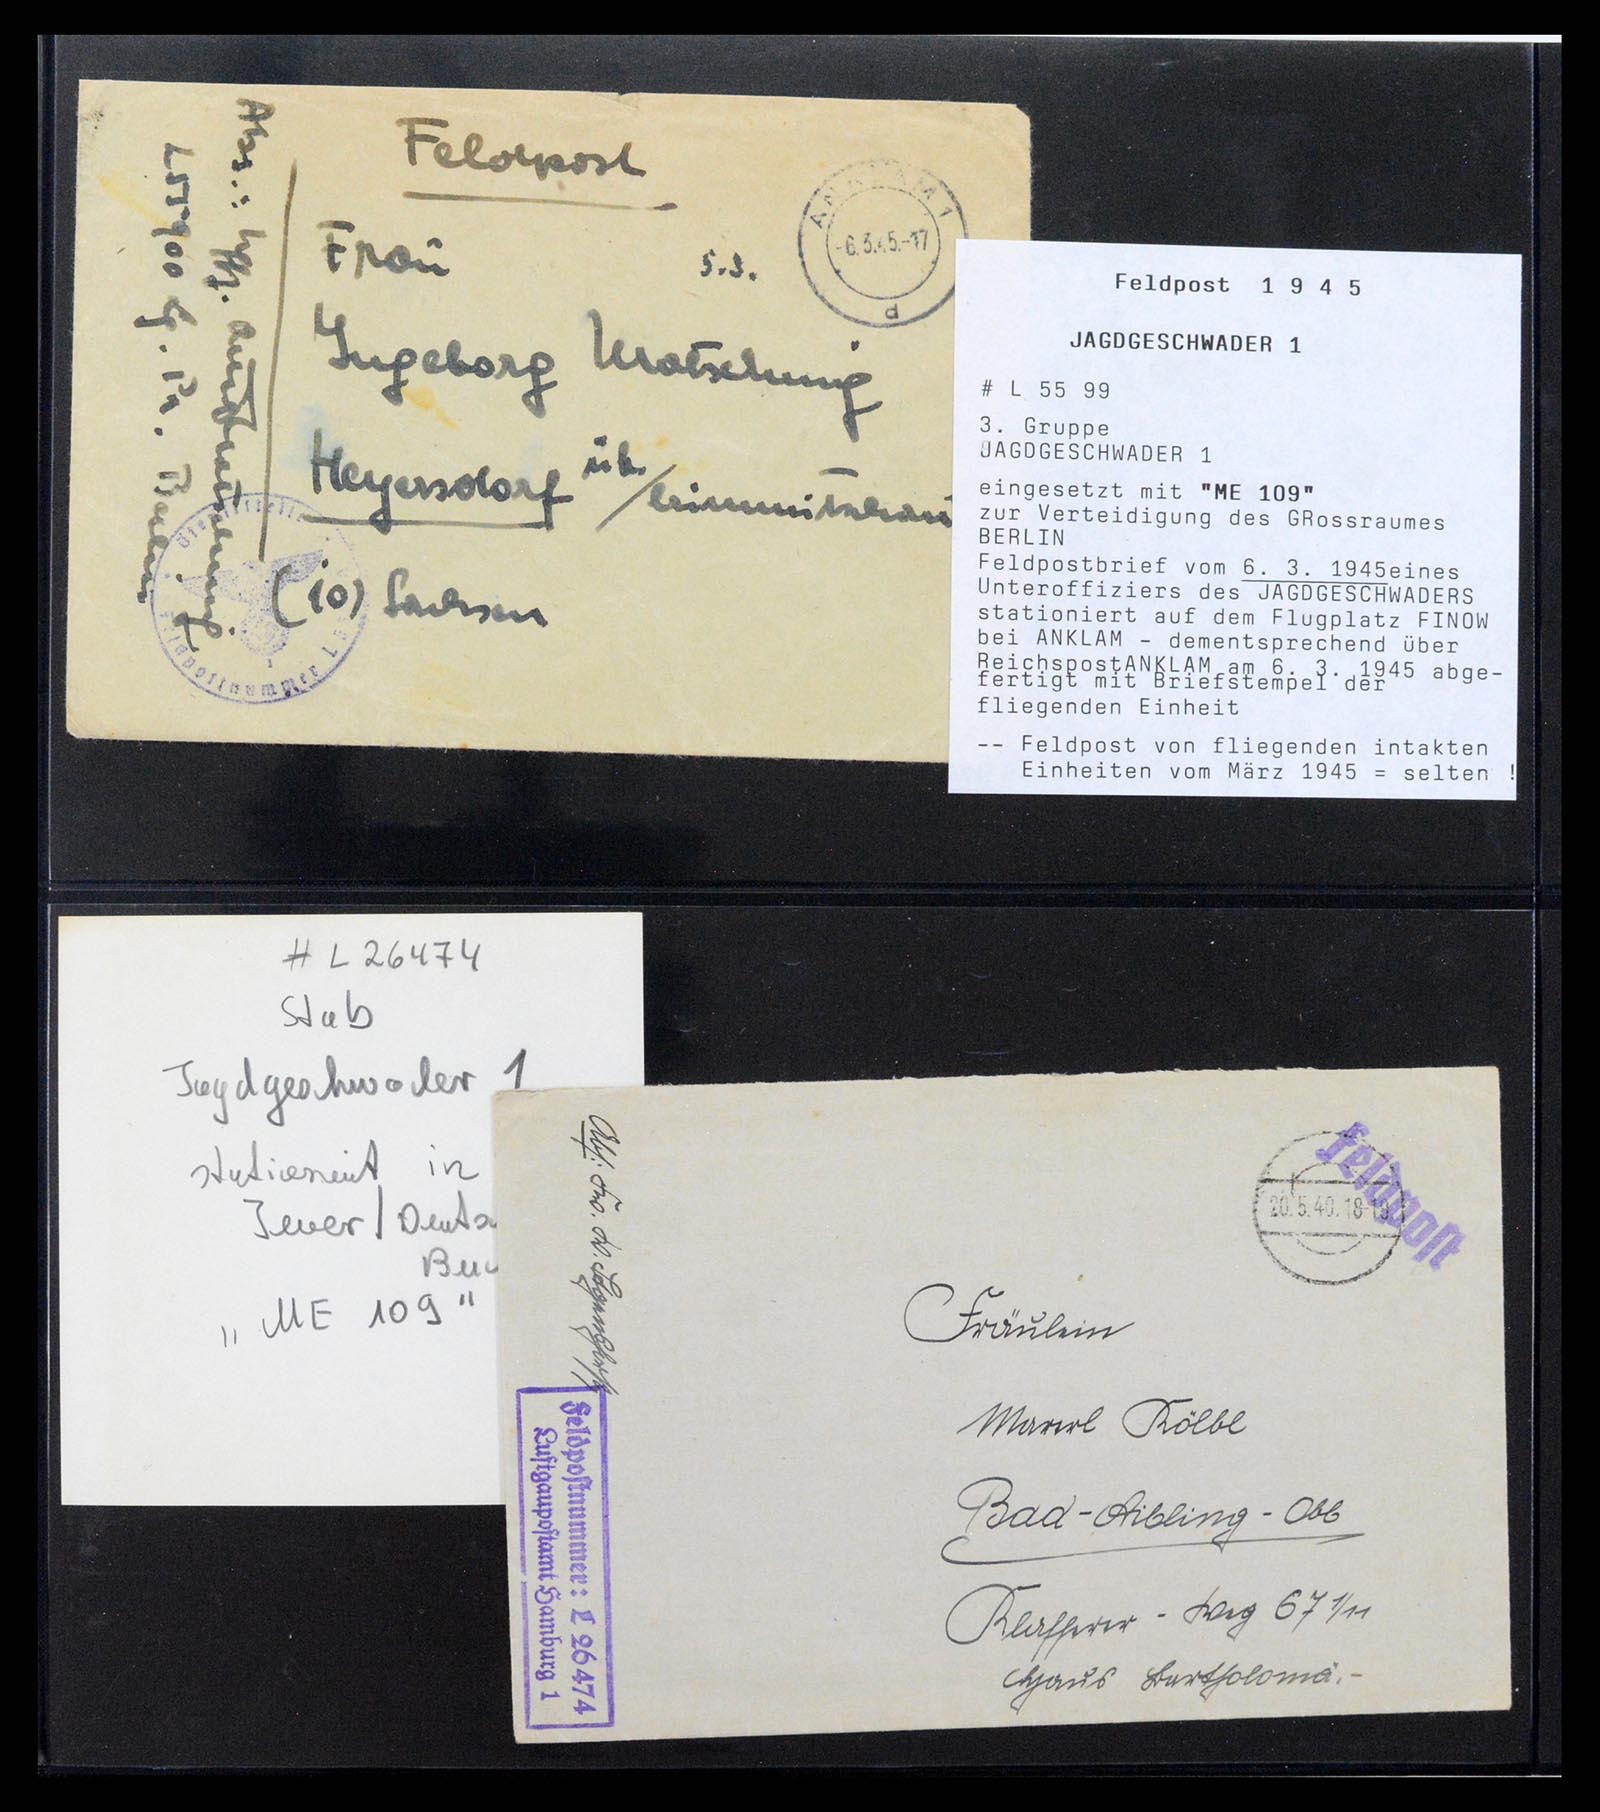 Feldpost
Frau
5.3.
Ingeborg
Heyersdorf üb./
(10) Sachsen
Abs.: Uffz.
L 55900 Lg. PA. Berlin
ANKLAM 1
-6.3.45.-17
d
Dienststelle
Feldpostnummer L
Feldpost 1 9 4 5
JAGDGESCHWADER 1
# L 55 99
3. Gruppe
JAGDGESCHWADER 1
eingesetzt mit "ME 109"
zur Verteidigung des GRossraumes
BERLIN
Feldpostbrief vom 6. 3. 1945eines
Unteroffiziers des JAGDGESCHWADERS
stationiert auf dem Flugplatz FINOW
bei ANKLAM - dementsprechend über
ReichspostANKLAM am 6. 3. 1945 abge-
fertigt mit Briefstempel der
fliegenden Einheit
-- Feldpost von fliegenden intakten
Einheiten vom März 1945 = selten !
# L 26474
Stab
Jagdgeschwader 1
in
Jever/Deutsc
"ME 109"
Feldpost
20.5.40.18-19
Fräulein
Kölbl
Bad-Aibling-Obb
Weg 67 1/11
Haus Bartholomä.-
Abs:
Feldpostnummer: L 26474
Luftgaupostamt Hamburg 1